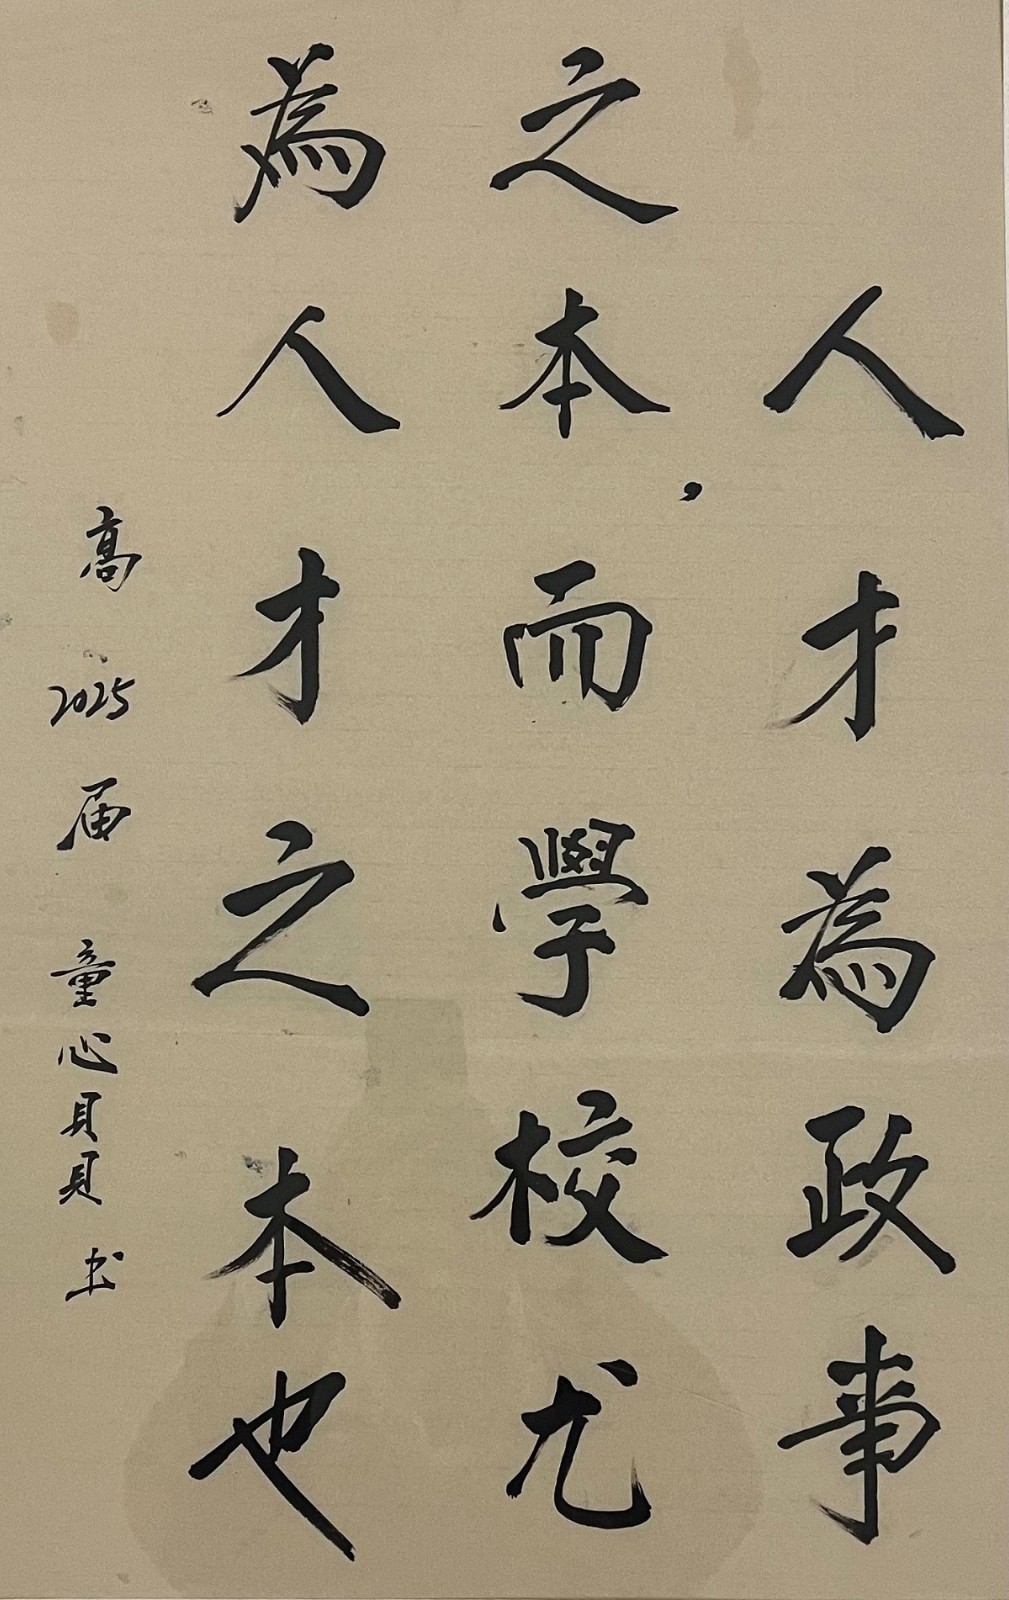 人才為政事
之本，而學校尤
為人才之本也
高2025届 童心貝貝书